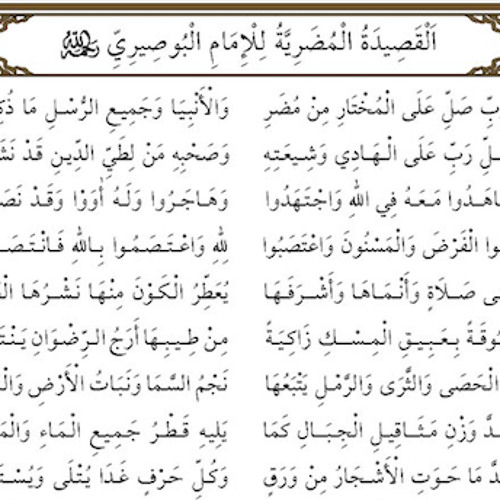 اَلْقَصِيدَةُ الْمُضَرِيَّةُ لِلْإِمَامِ الْبُوصِيرِيِّ
بِّ صَلِّ عَلَى الْمُخْتَارِ مِنْ مُضَرِ وَالْأَنْبِيَا وَجَمِيعِ الرُّسْلِ مَا ذُكِ
لِّ رَبِّ عَلَى الْهَادِي وَشِيعَتِهِ وَصَحْبِهِ مَنْ لِطَيِّ الدِّينِ قَدْ نَشَ
اهَدُوا مَعَهُ فِي اللهِ وَاجْتَهَدُوا وَهَاجَرُوا وَلَهُ أَوَوْا وَقَدْ نَصَ
وا الْفَرْضَ وَالْمَسْنُونَ وَاعْتَصَبُوا لِلهِ وَاعْتَصَمُوا بِاللهِ فَانْتَصَ
ى صَلَاةٍ وَأَنْمَاهَا وَأَشْرَفَهَا يُعَطِّرُ الْكَوْنَ مِنْهَا نَشْرُهَا الْ
وقَةً بِعَبِيقِ الْمِسْكِ زَاكِيَةً مِنْ طِيبِهَا أَرَجُ الرِّضْوَانِ يَنْتَ
الْحَصَى وَالثَّرَى وَالرَّمْلِ يَتْبَعُهَا نَجْمُ السَّمَا وَنَبَاتُ الْأَرْضِ وَالْ
دَّ وَزْنِ مَثَاقِيلِ الْجِبَالِ كَمَا يَلِيهِ قَطْرُ جَمِيعِ الْمَاءِ وَالْمَ
دَّ مَا حَوَتِ الْأَشْجَارُ مِنْ وَرَقٍ وَكُلِّ حَرْفٍ غَدَا يُتْلَى وَيُسْتَ